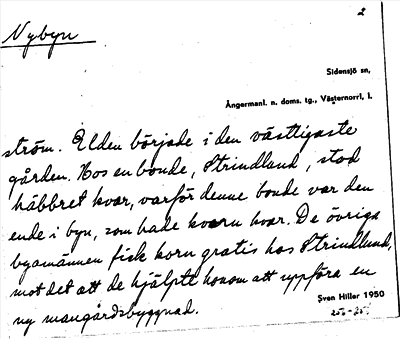 2
Nybyn
Sidensjö sn,
Ångermanl. n. doms. tg., Västernorrl. l.
ström. Elden började i den västligaste
gården. Hos en bonde, Strindlund, stod
häbbret kvar, varför denne bonde var den
ende i byn, som hade korn kvar. De övriga
byamännen fick korn gratis hos Strindlund,
mot det att de hjälpte honom att uppföra en
ny mangårdsbyggnad.
Sven Hiller 1950